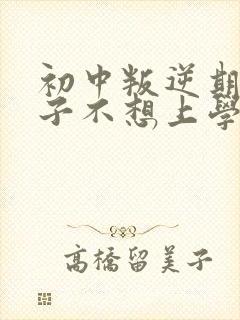 初中叛逆期
子不想上學
高橋留美子